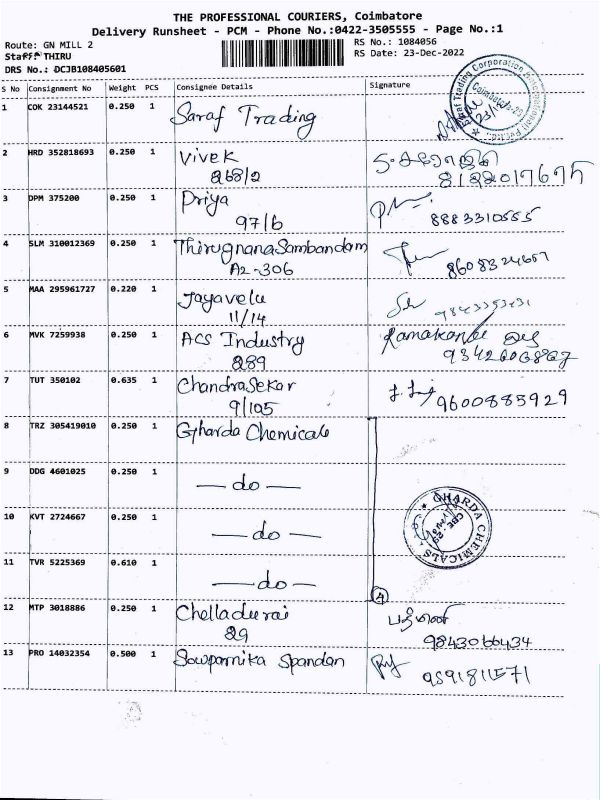 THE PROFESSIONAL COURIERS, Coimbatore
Delivery Runsheet - PCM - Phone No.:0422-3505555 - Page No.:1
Route: GN MILL 2
RS No.: 1084056
Staff: THIRU
RS Date: 23-Dec-2022
DRS No.: DCJB108405601
S No Consignment No Weight PCS Consignee Details Signature
1 COK 23144521 0.250 1 Saraf Trading
2 HRD 352818693 0.250 1 Vivek
268/2
3 DPM 375200 0.250 1 Priya
97/6 8883310555
4 SLM 310012369 0.250 1 ThirugnanaSambandam
A2-306 8608324657
5 MAA 295961727 0.220 1 Jayavelu
11/14 9843353431
6 MVK 7259938 0.250 1 ACS Industry
289
7 TUT 350102 0.635 1 ChandraSekar
9/105 9600885929
8 TRZ 305419010 0.250 1 Gharda Chemicals
9 DDG 4601025 0.250 1
— do —
10 KVT 2724667 0.250 1
— do —
GHARDA CHEMICALS
11 TVR 5225369 0.610 1
— do —
4
12 MTP 3018886 0.250 1 Chelladurai
29 9843066434
13 PRO 14032354 0.500 1 Sowparnika Spandan
9591811571